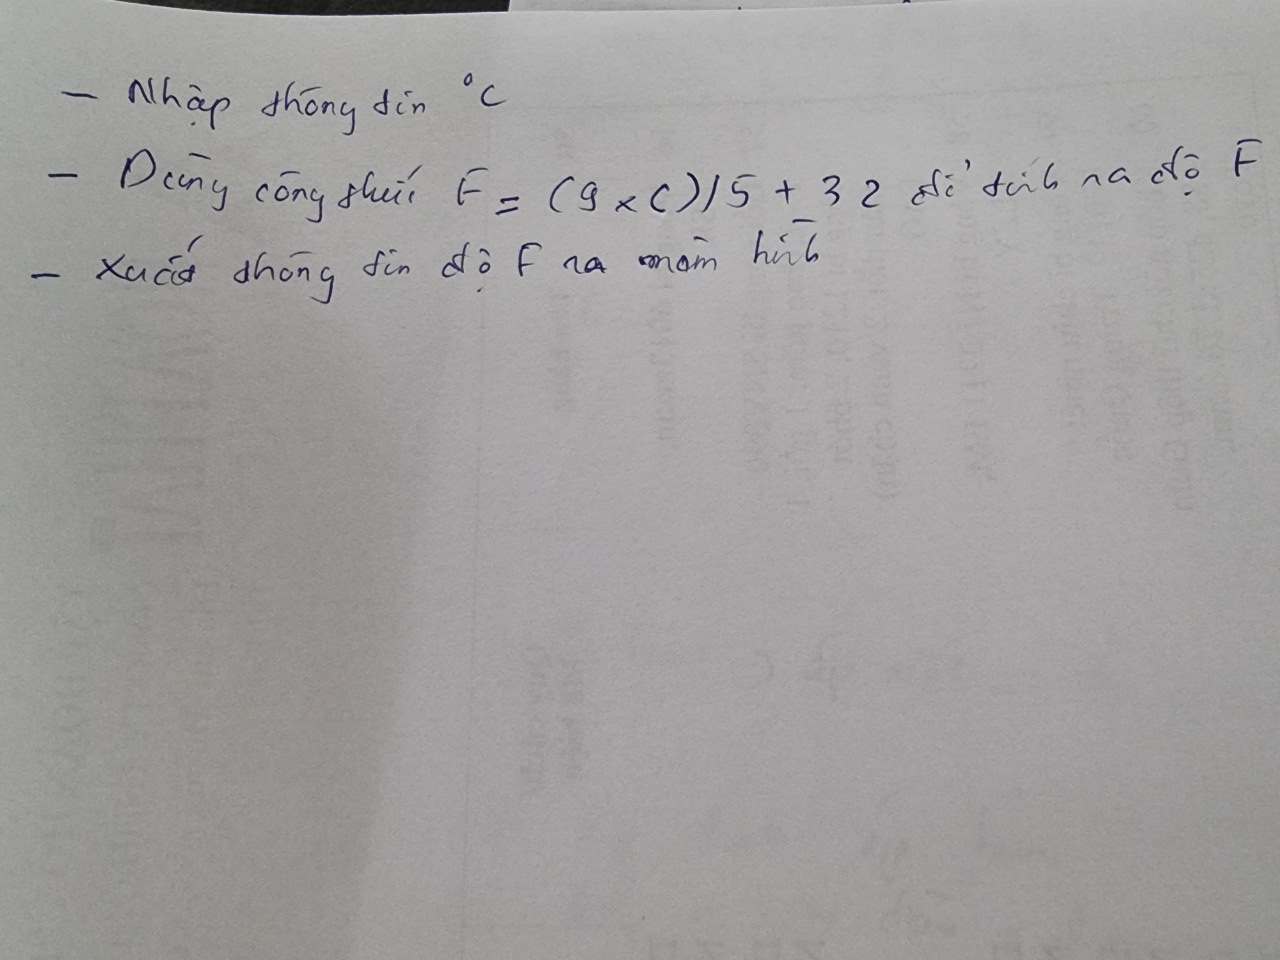 - Nhập thông tin °C
- Dùng công thức F = (9 x C)/5 + 32 để tính ra độ F
- Xuất thông tin độ F ra màn hình